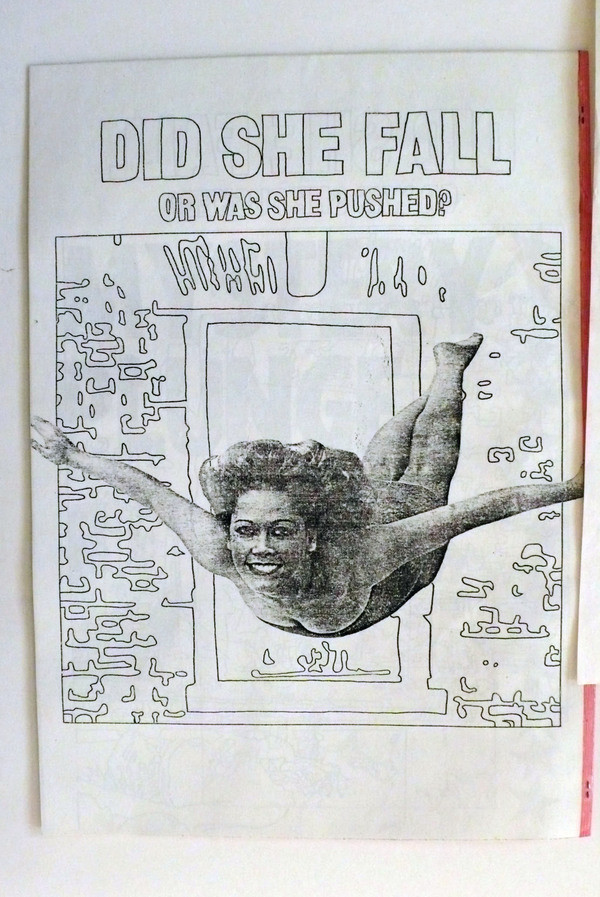 DID SHE FALL
OR WAS SHE PUSHED?